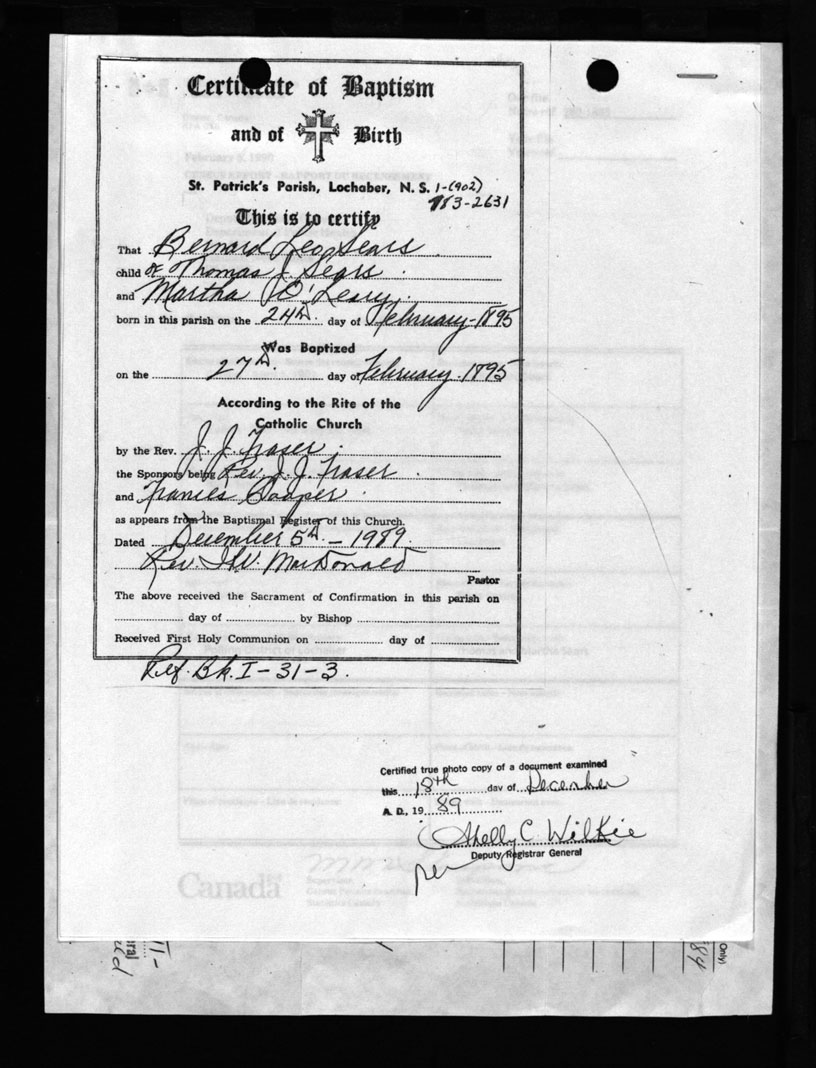 Certificate of Baptism
and of Birth
St. Patrick's Parish, Lochaber, N. S. 1-(902)
783-2631
This is to certify
That Bernard Leo Sears
child of Thomas J. Sears
and Martha O'Leary
born in this parish on the 24th day of February - 1895
Was Baptized
on the 27th day of February - 1895
According to the Rite of the
Catholic Church
by the Rev. J. J. Fraser
the Sponsors being Rev. J. J. Fraser
and Frances Cooper
as appears from the Baptismal Register of this Church.
Dated December 5th - 1989.
Rev. MacDonald
Pastor
The above received the Sacrament of Confirmation in this parish on
day of by Bishop
Received First Holy Communion on day of
Ref. Bk. I-31-3.
Certified true photo copy of a document examined
this 18th day of December
A. D., 19 89
Shelly C Wilkie
Deputy Registrar General
per
Canada
Only)